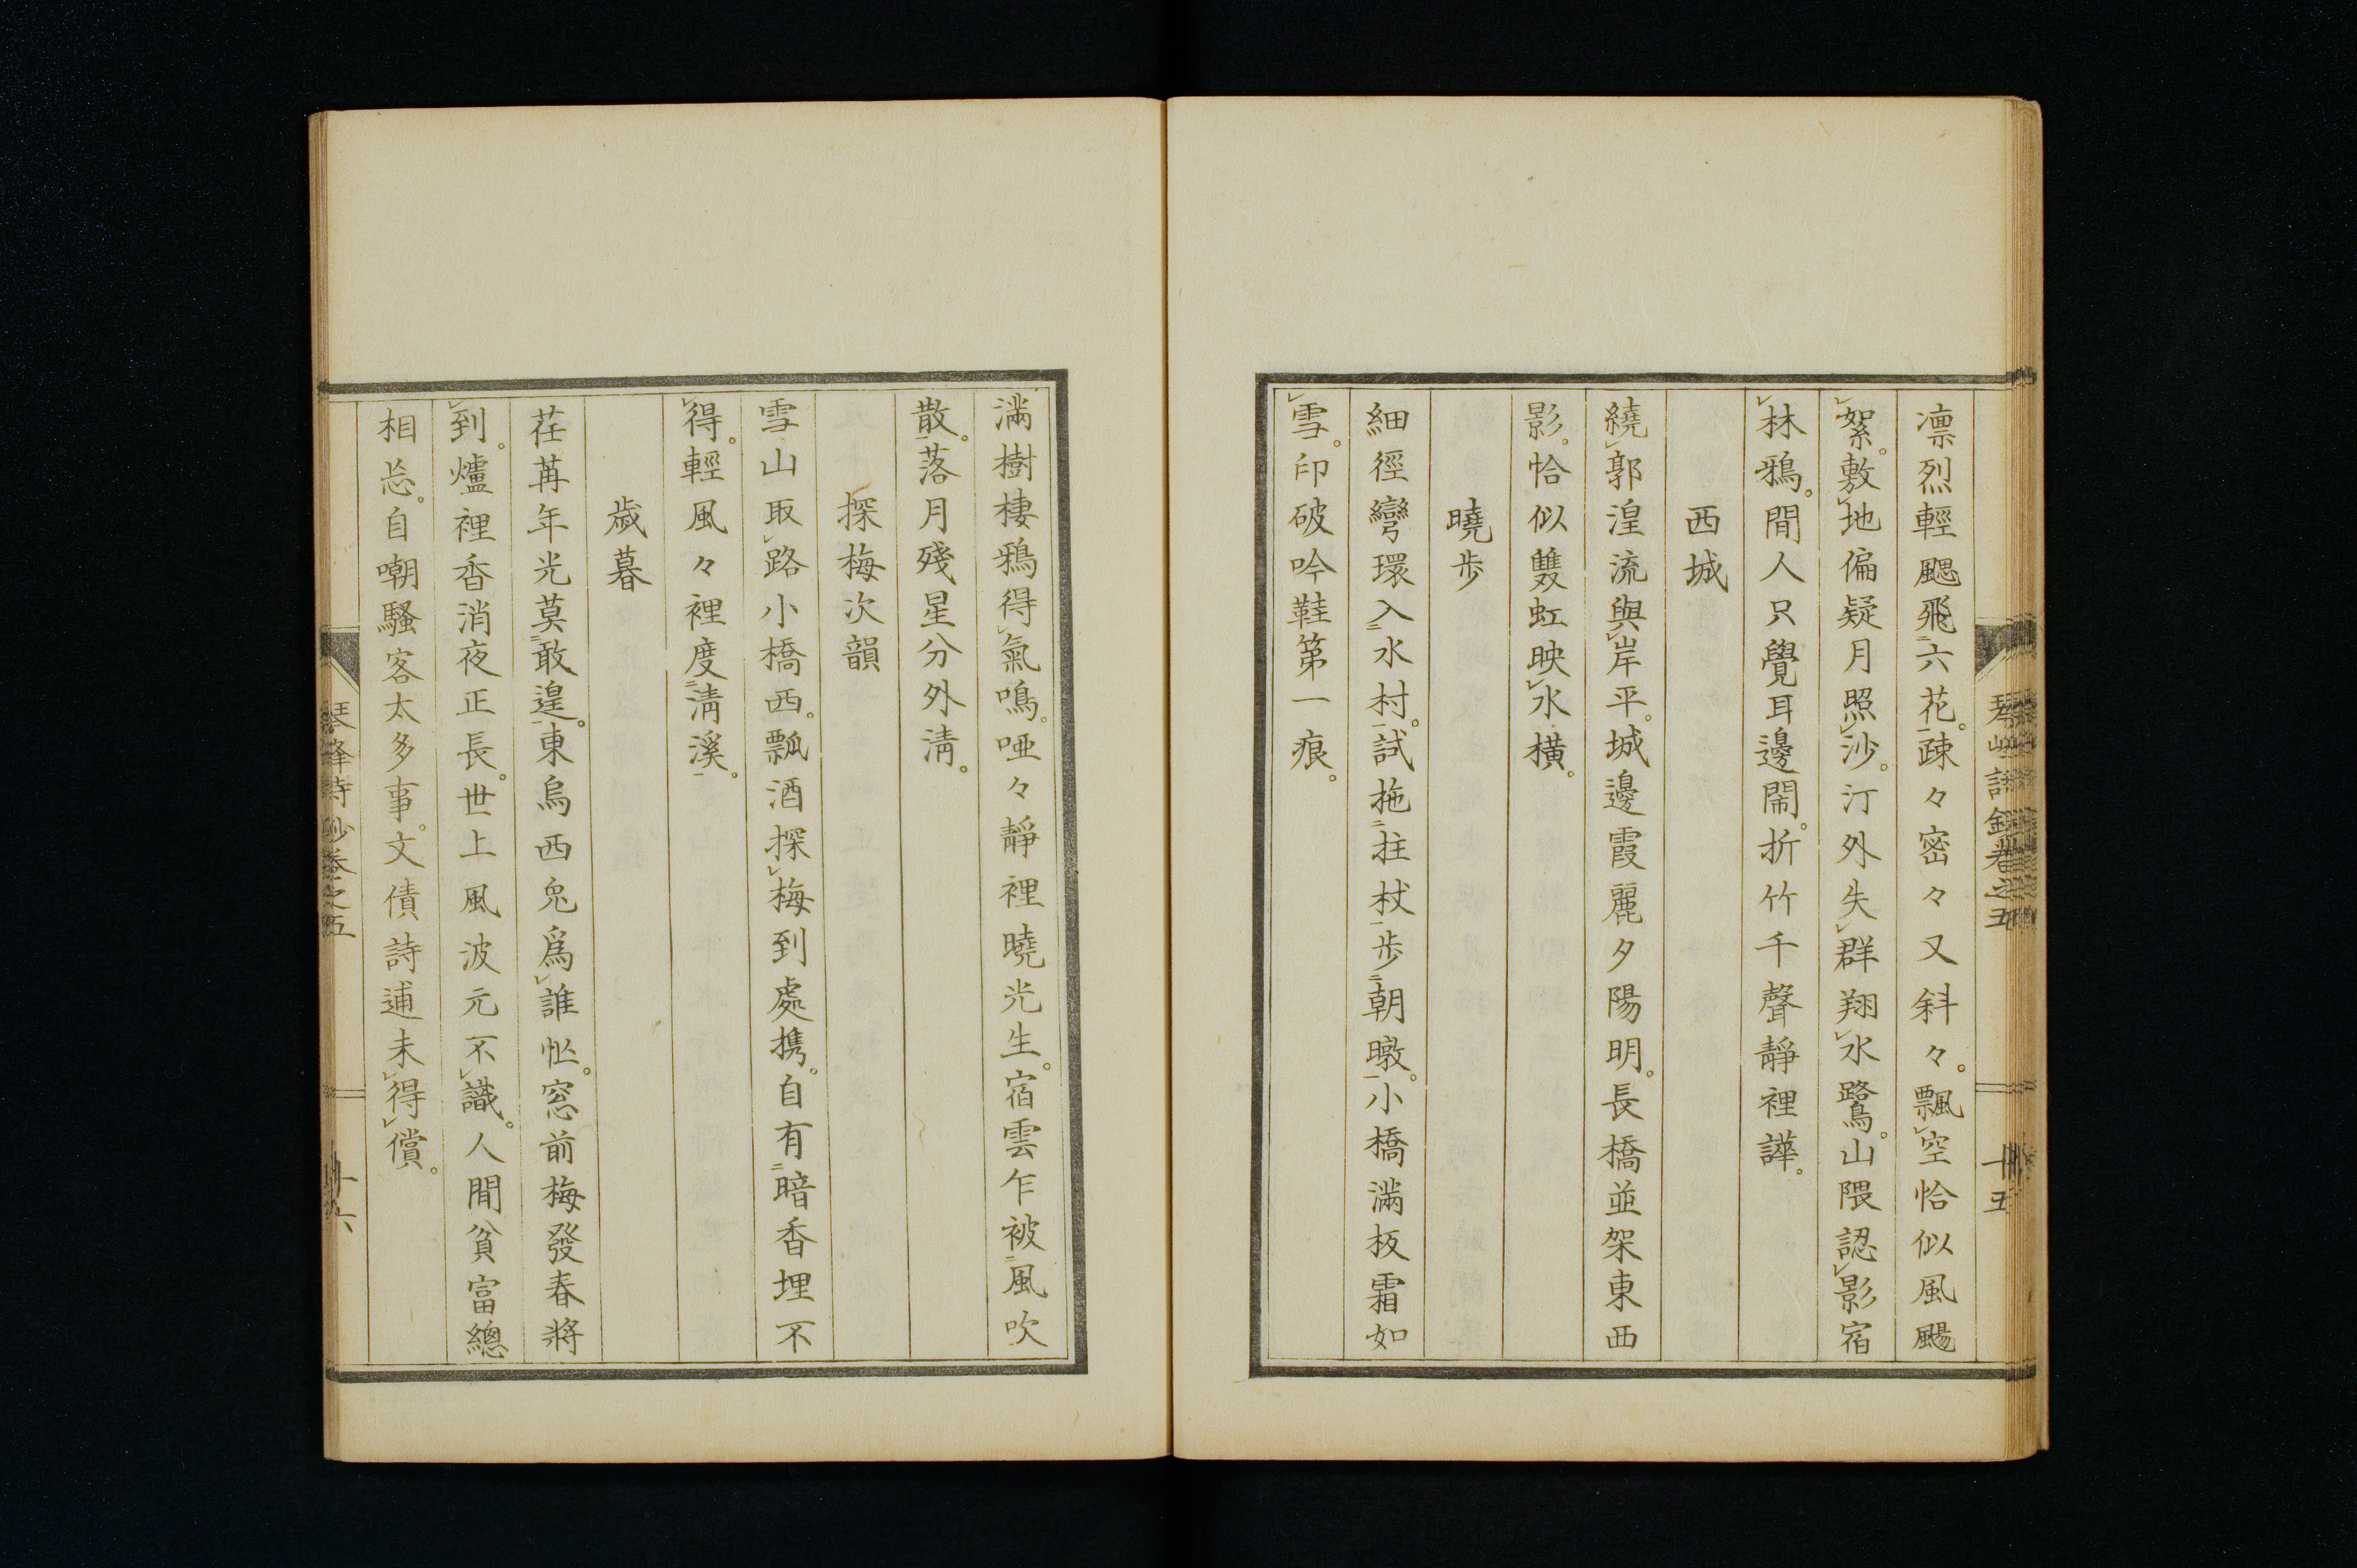 凛烈輕颸飛六花。疎々密々又斜々。飄空恰似風颺
絮。敷地偏疑月照沙。汀外失群翔水鷺。山隈認影宿
林鴉。閒人只覺耳邊閙。折竹千聲靜裡譁。
西城
繞郭湟流與岸平。城邊霞麗夕陽明。長橋並架東西
影。恰似雙虹映水橫。
曉步
細徑彎環入水村。試拖拄杖步朝暾。小橋滿板霜如
雪。印破吟鞋第一痕。
滿樹棲鴉得氣鳴。啞々靜裡曉光生。宿雲乍被風吹
散。落月殘星分外淸。
探梅次韻
雪山取路小橋西。瓢酒探梅到處携。自有暗香埋不
得。輕風々裡度淸溪。
歲暮
荏苒年光莫敢遑。東烏西兎爲誰忙。窓前梅發春將
到。爐裡香消夜正長。世上風波元不識。人間貧富總
相忘。自嘲騷客太多事。文債詩逋未得償。
卷之五
十五
琴峰詩鈔卷之五
十六